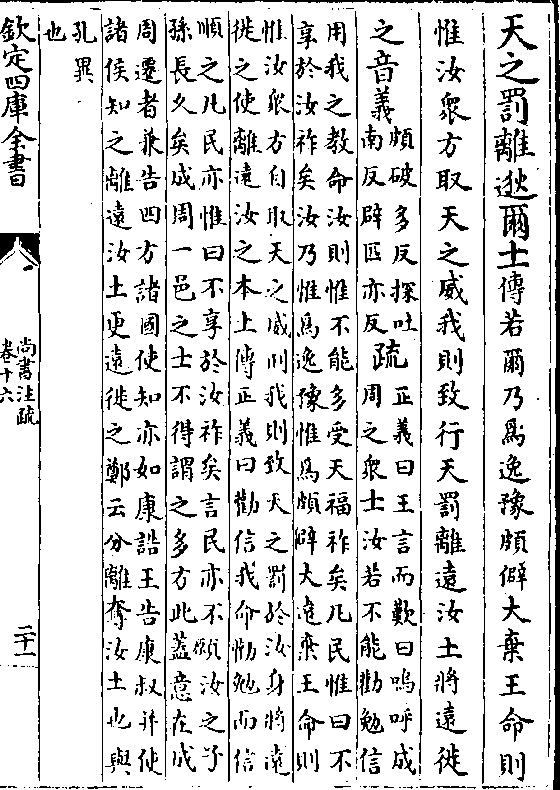 天之罰離逖爾土傳若爾乃為逸豫頗僻大棄王命則
惟汝衆方取天之威我則致行天罰離遠汝土將遠徙
之音義頗破多反探吐
南反辟匹亦反
疏正義曰王言而歎曰嗚呼成
周之衆士汝若不能勸勉信
用我之教命汝則惟不能多受天福祚矣凡民惟曰不
享於汝祚矣汝乃惟為逸豫惟為頗僻大遠棄王命則
惟汝衆方自取天之威刑我則致天之罰於汝身將遠
徙之使離遠汝之本土傳正義曰勸信我命勸勉而信
順之凡民亦惟曰不享於汝祚矣言民亦不願汝之子
孫長久矣成周一邑之士不得謂之多方此蓋意在成
周遷者兼告四方諸國使知亦如康誥王告康叔并使
諸侯知之離遠汝土更遠徙之鄭云分離奪汝土也與
孔異
也
欽定四庫全書
尚書注疏
卷十六
二十一